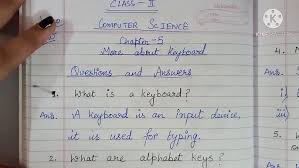 CLASS - II
COMPUTER SCIENCE
Chapter-5
More about Keyboard
Questions and Answers
1. What is a keyboard?
Ans. A keyboard is an input device,
it is used for typing.
2. What are alphabet keys?
4.
Ans.
i)
iii)
5.